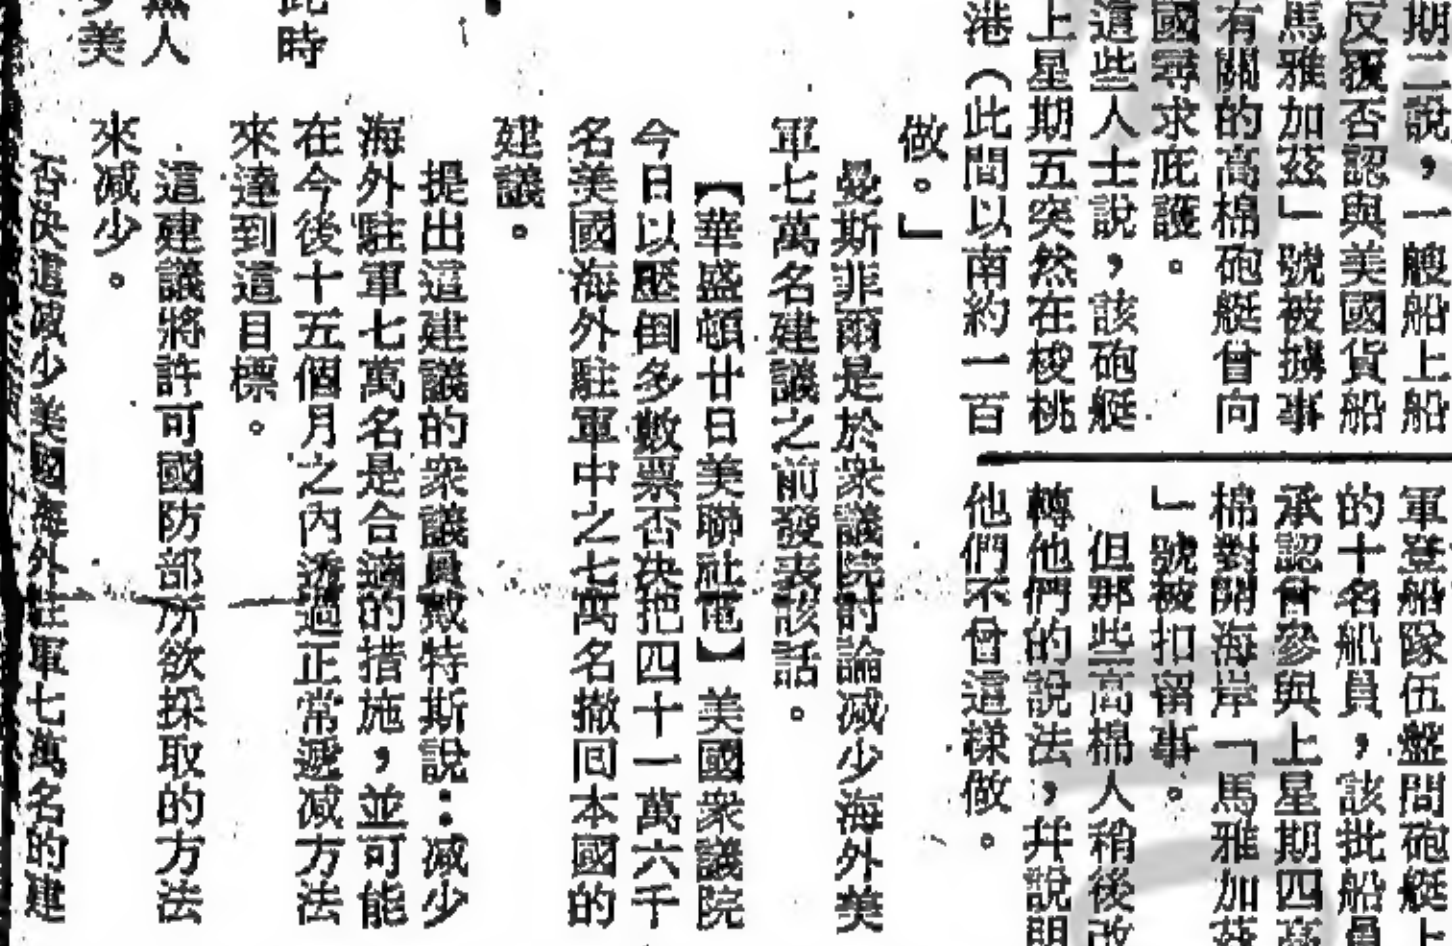 期三說，一艘船上船
反覆否認與美國貨船
馬雅加茲」號被擄事
有關的高棉砲艇曾向
國尋求庇護。
這些人士說，該砲艇
上星期五突然在梭桃
港（此間以南約一百
軍登船隊伍盤問砲艇上
的十名船員，該批船員
承認曾參與上星期四高
棉對開海岸「馬雅加茲
」號被扣留事。
但那些高棉人稍後改
轉他們的說法，幷說明
他們不曾這樣做。
做。」
曼斯菲爾是於衆議院討論减少海外美
軍七萬名建議之前發表該話。
【華盛頓廿日美聯社電】美國衆議院
今日以壓倒多數票否決把四十一萬六千
名美國海外駐軍中之七萬名撤回本國的
建議。
提出這建議的衆議員戴特斯說：减少
海外駐軍七萬名是合適的措施，並可能
在今後十五個月之內透過正常遞减方法
來達到這目標。
這建議將許可國防部所欲採取的方法
來减少。
否決這减少美國海外駐軍七萬名的建
此時
無人
美